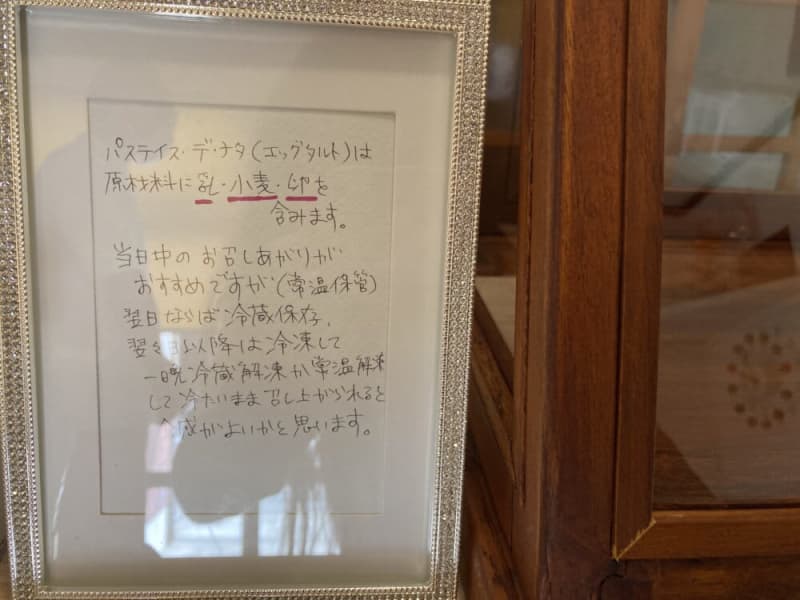 パステイス・デ・ナタ(エッグタルト)は
原材料に乳・小麦・卵を
含みます。
当日中のお召しあがりが
おすすめですが(常温保管)
翌日ならば冷蔵保存、
翌々日以降は冷凍して
一晩冷蔵解凍か常温解凍
して冷たいまま召し上がられると
食感がよいかと思います。